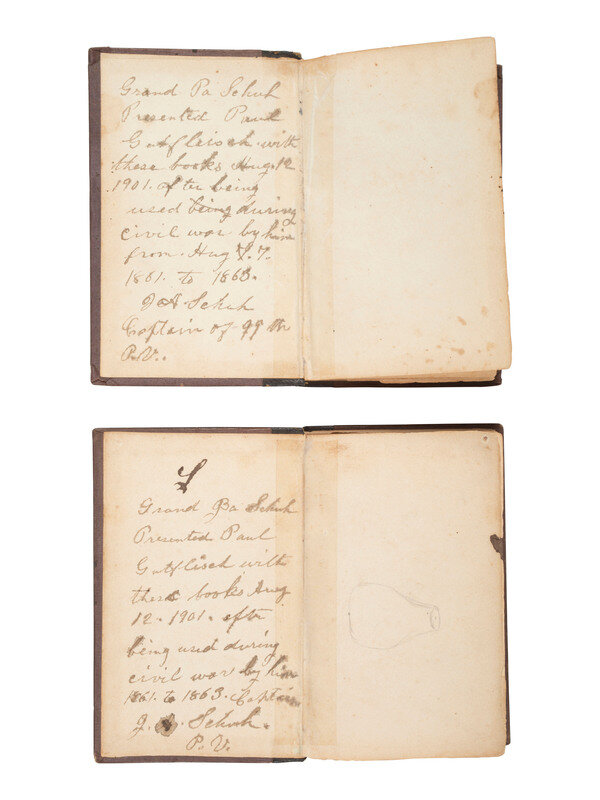 Grand Pa Schuh
Presented Paul
Gutfleisch with
these books Aug. 12
1901. after being
used being during
civil war by him
from Aug 7.
1861 to 1863.
J A Schuh
Captain of 99 th
P. V.
Grand Pa Schuh
Presented Paul
Gutflisch with
these books Aug
12. 1901. after
being used during
civil war by him
1861 to 1863. Captain
J. Schuh.
P. V.